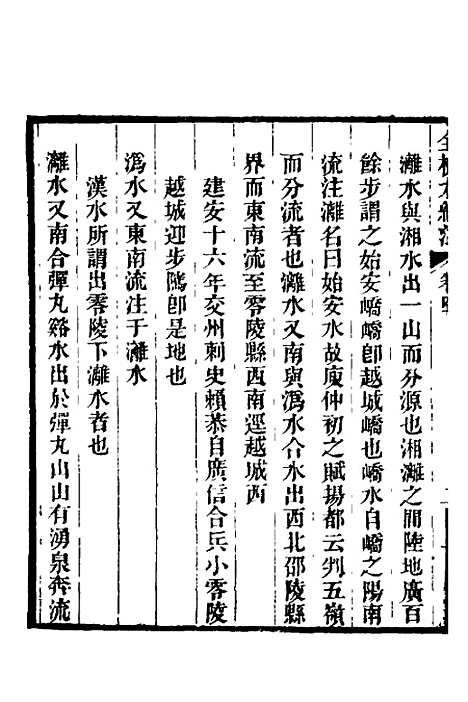 灕水與湘水出一山而分源也湘灕之間陸地廣百
餘步謂之始安嶠嶠卽越城嶠也嶠水自嶠之陽南
流注灕名曰始安水故庾仲初之賦揚都云判五嶺
而分流者也灕水又南與潙水合水出西北邵陵縣
界而東南流至零陵縣西南逕越城西
建安十六年交州刺史賴恭自廣信合兵小零陵
越城迎步隲卽是地也
潙水又東南流注于灕水
漢水所謂出零陵下灕水者也
灕水又南合彈丸谿水出於彈丸山山有湧泉奔流